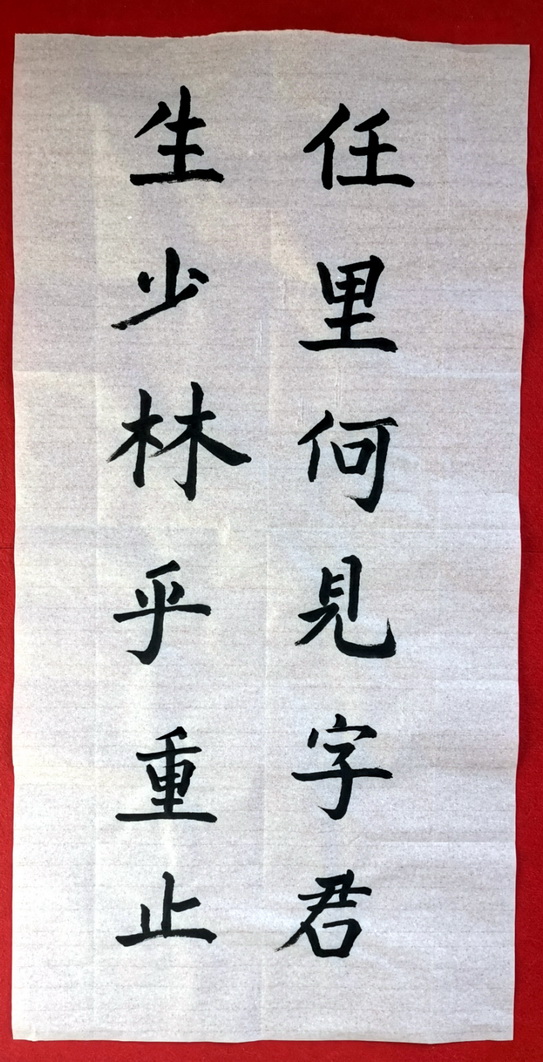 任里何見字君
生少林乎重止